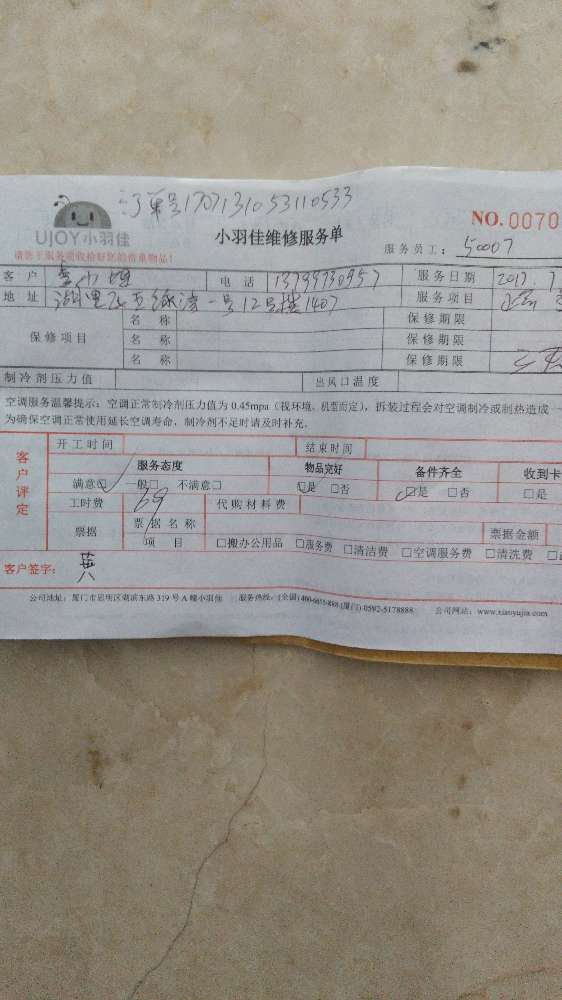 订单号1707131053110533
UJOY小羽佳
小羽佳维修服务单
NO.0070
请您于服务前收拾好您的贵重物品!
服务员工: 50007
客户 电话 13799730957 服务日期 2017.7
地址 湖里 一号12号楼1407 服务项目
保修项目 名称 保修期限
名称 保修期限
名称 保修期限
制冷剂压力值 出风口温度
空调服务温馨提示: 空调正常制冷剂压力值为 0.45mpa (视环境、机型而定), 拆装过程会对空调制冷或制热造成一
为确保空调正常使用延长空调寿命, 制冷剂不足时请及时补充.
客户评定
开工时间 结束时间
服务态度 物品完好 备件齐全 收到卡
满意☑ 一般□ 不满意□ ☑是 □否 ☑是 □否 □是
工时费 69 代购材料费
票据 票据名称 票据金额
项目 □搬办公用品 □服务费 □清洁费 □空调服务费 □清洗费
客户签字: 黄
公司地址: 厦门市思明区湖滨东路 319 号 A 幢小羽佳 服务热线: (全国) (厦门) 0592-5178888 公司网站: www.xiaoyujia.com